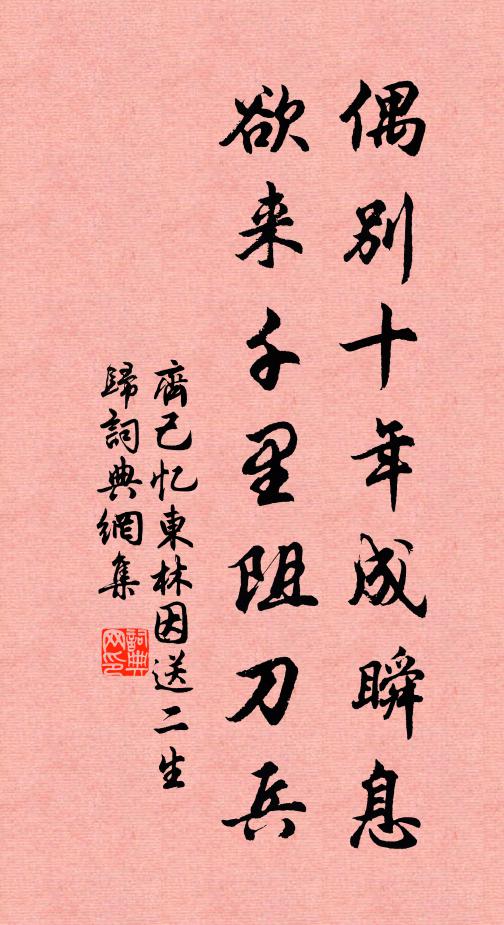 偶别十年成瞬息
欲来千里阻刀兵
齊己忆東林因送二生
歸詞典網集
詞典
网印